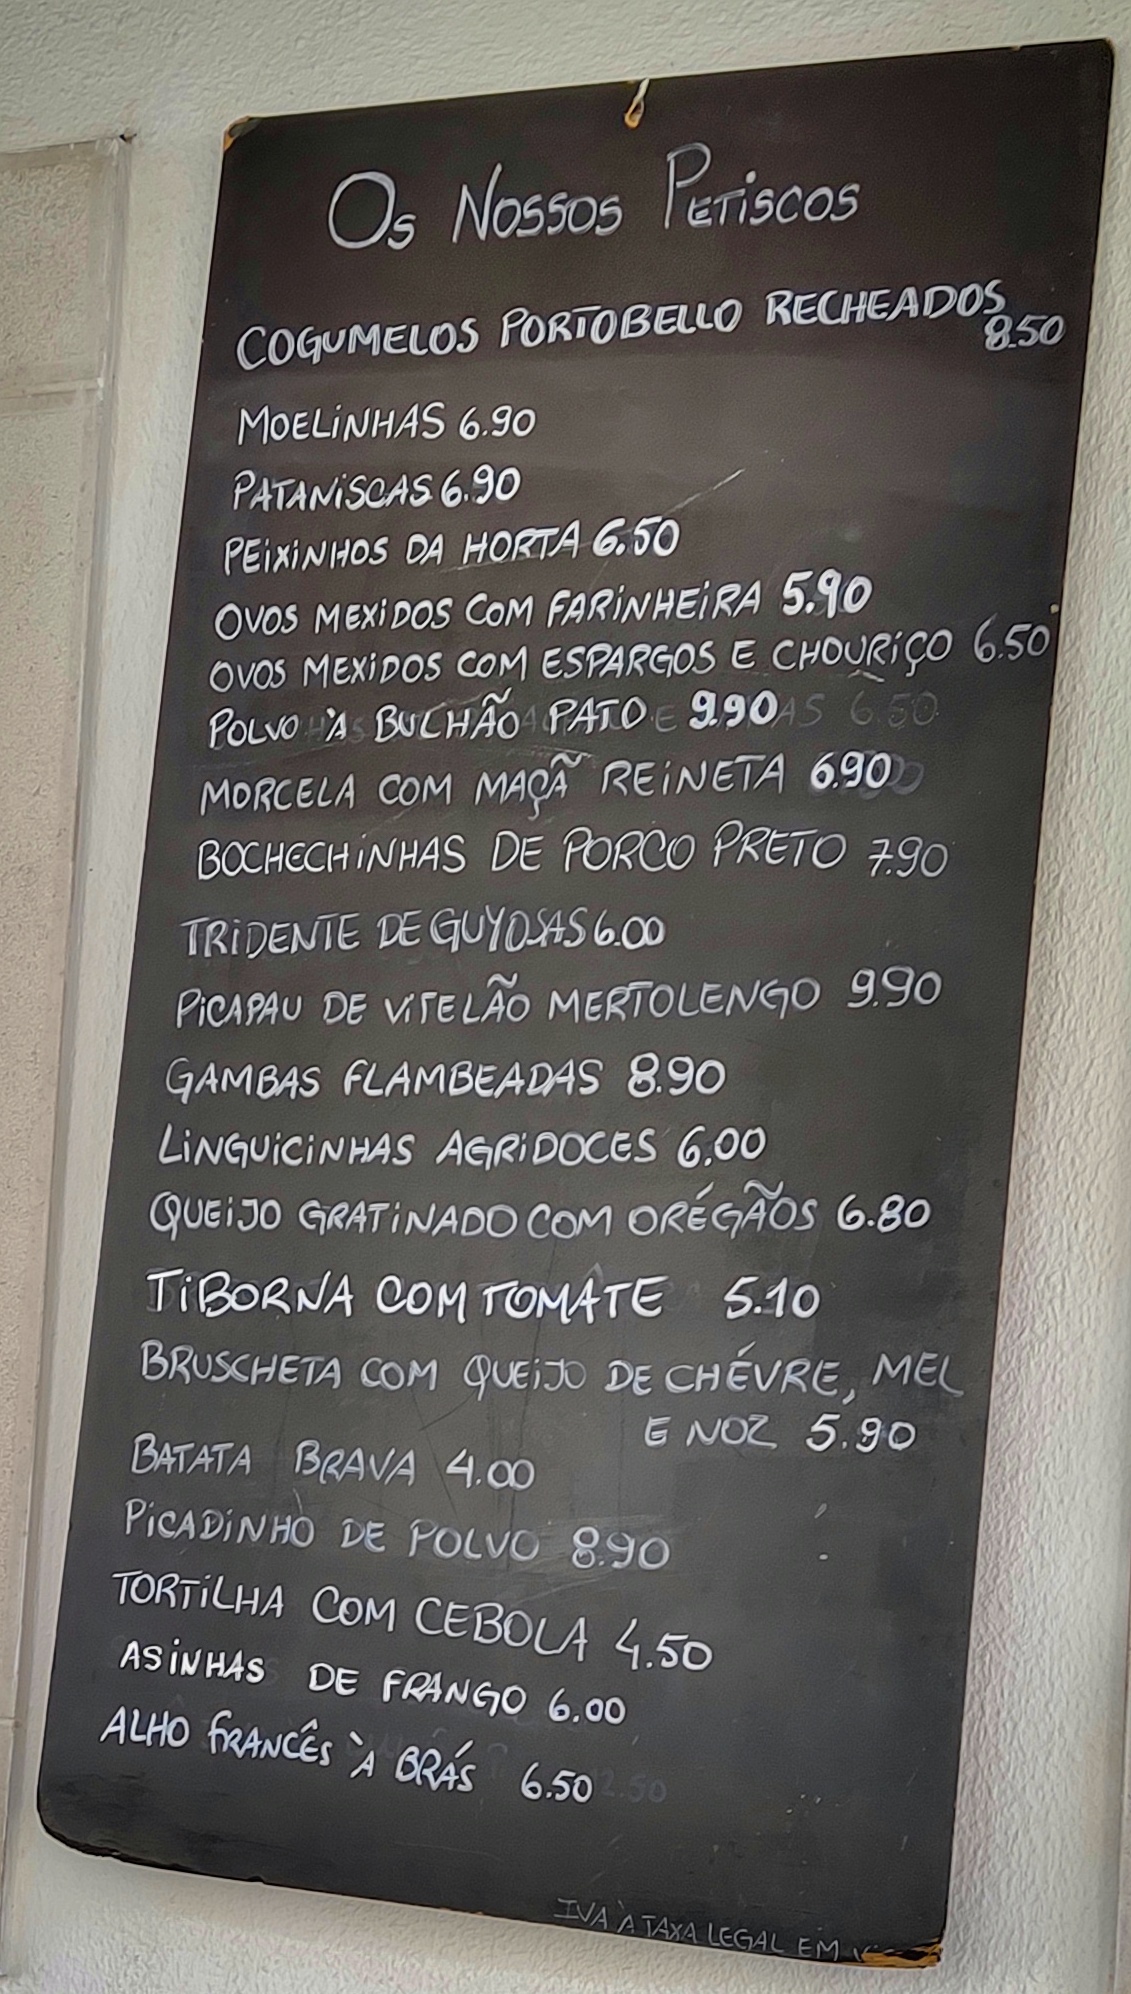 Os Nossos Petiscos
COGUMELOS PORTOBELLO RECHEADOS
8.50
MOELINHAS 6.90
PATANISCAS 6.90
PEIXINHOS DA HORTA 6.50
OVOS MEXIDOS COM FARINHEIRA 5.90
OVOS MEXIDOS COM ESPARGOS E CHOURIÇO 6.50
POLVO À BULHÃO PATO 9.90
MORCELA COM MAÇÃ REINETA 6.90
BOCHECHINHAS DE PORCO PRETO 7.90
TRIDENTE DE GUYOSAS 6.00
PICAPAU DE VITELÃO MERTOLENGO 9.90
GAMBAS FLAMBEADAS 8.90
LINGUICINHAS AGRIDOCES 6.00
QUEIJO GRATINADO COM ORÉGÃOS 6.80
TIBORNA COM TOMATE 5.10
BRUSCHETA COM QUEIJO DE CHÉVRE, MEL
E NOZ 5.90
BATATA BRAVA 4.00
PICADINHO DE POLVO 8.90
TORTILHA COM CEBOLA 4.50
ASINHAS DE FRANGO 6.00
ALHO FRANCÊS À BRÁS 6.50
IVA À TAXA LEGAL EM